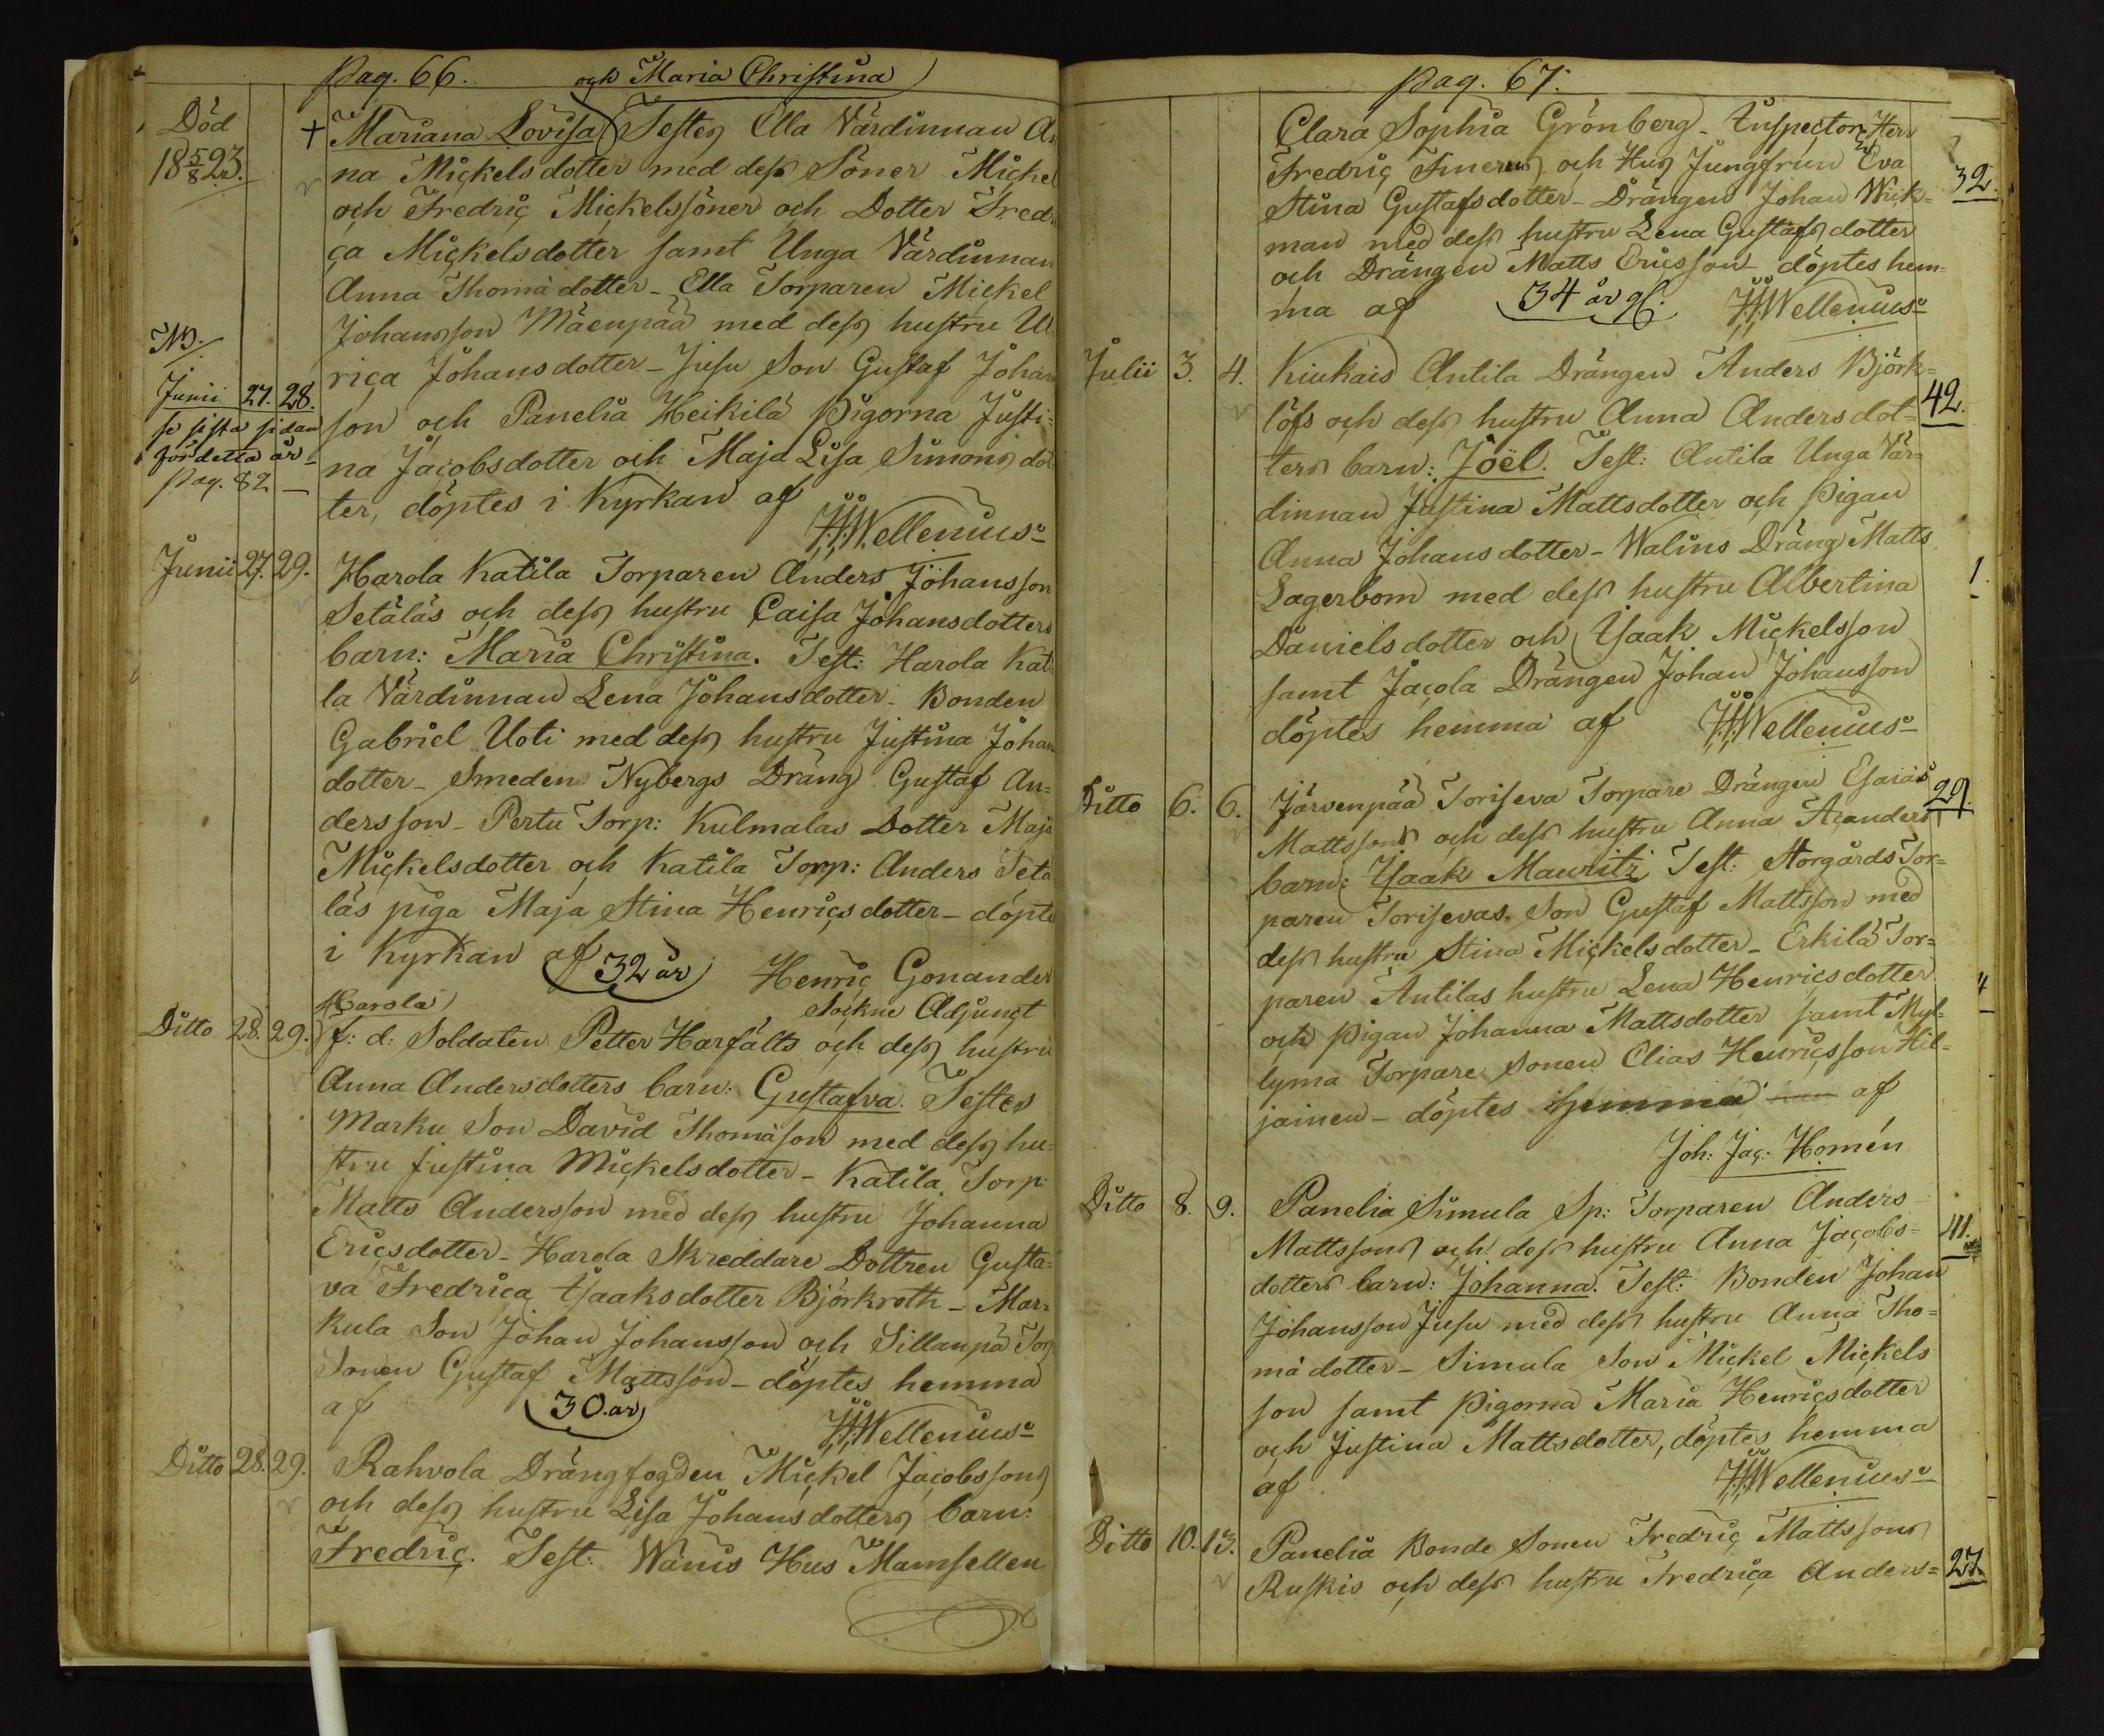 Pag. 66. och Maria Christina
Död
18 5/8 23.
+ Mariana Lovisa Testes Ella Värdinnan An
na Mickelsdotter med dess Söner Mickel
och Fredric Mickelssöner och Dotter Fredri
ca Mickelsdotter samt Unga Värdinnan
Anna Thomädotter - Ella Torparen Mickel
Johansson Mäenpää med dess hustru Ul
rica Johansdotter - Jusu Son Gustaf Johans
son och Panelia Heikilä Pigorna Justi=
na Jacobsdotter och Maja Lisa Simons dot
ter, döptes i Kyrkan af
H:H:Wellenius
NB.
Junii 27. 28.
se sista sidan
för detta år -
Pag. 82 -
Junii 27. 29. Harola Katila Torparen Anders Johansson
Setäläs och dess hustru Caisa Johansdotters
barn: Maria Christina. Test: Harola Kati
la Värdinnan Lena Johansdotter - Bonden
Gabriel Uoti med dess hustru Justina Johans
dotter - Smeden Nybergs Dräng Gustaf An=
dersson - Pertu Torp: Kulmalas Dotter Maja
Mickelsdotter och Katila Torp: Anders Setä
läs piga Maja Stina Henricsdotter - döpte
i Kyrkan af 32 år Henric Gonander
Sockne Adjunct
Harola
Ditto 28. 29. f: d: Soldaten Petter Harfälts och dess hustru
Anna Andersdotters barn: Gustafva. Testes
Marku Son David Thomäson med dess hu=
stru Justina Mickelsdotter - Katila Torp:
Matts Andersson med dess hustru Johanna
Ericsdotter - Harola Skreddare Dottren Gusta=
va Fredrica Isaaksdotter Björkroth - Mar=
kula Son Johan Johansson och Sillanpä Torp
Sonen Gustaf Mattsson - döptes hemma
af 30. år H:H:Wellenius
Ditto 28. 29. Rahvola Drängfogden Mickel Jacobssons
och dess hustru Lisa Johansdotters barn:
Fredric. Test: Wänis Hus Mamsellen
Pag. 67.
Clara Sophia Grönberg - Inspector Herr
Fredric och Hus Jungfrun Eva
Stina Gustafsdotter - Drängen Johan Wick= 32.
man med dess hustru Lena Gustafsdotter
och Drängen Matts Ericsson - döptes hem=
ma af 34 år gl. H:H:Wellenius
Julii 3. 4. Kiukais Antila Drängen Anders Björk=
löfs och dess hustru Anna Andersdot= 42.
ters barn: Joël. Test: Antila Unga Vär=
dinnan Justina Mattsdotter och Pigan
Anna Johansdotter - Walins Dräng Matts
Lagerbom med dess hustru Albertina 1.
Danielsdotter och Isaak Mickelsson
samt Jacola Drängen Johan Johansson
döptes hemma af H:H:Wellenius
Ditto 6. 6. Järvenpää Toriseva Torpare Drängen Esaias 29.
Mattssons och dess hustru Anna Acanders
barn: Isaak Mauritz Test: Storgårds Tor=
paren Torisevas Son Gustaf Mattsson med
dess hustru Stina Mickelsdotter - Erkilä Tor=
paren Antilas hustru Lena Henricsdotter 4
och Pigan Johanna Mattsdotter samt Myl=
lymä Torpare Sonen Elias Henricsson Hil=
jainen - döptes hemma af
Joh: Jac: Homén
Ditto 8. 9. Panelia Simula Sp: Torparen Anders
Mattssons och dess hustru Anna Jacobs= 41.
dotters barn: Johanna. Test: Bonden Johan
Johansson Jusu med dess hustru Anna Tho=
mä dotter - Simula Son Mickel Mickels
son samt Pigorna Maria Henricsdotter
och Justina Mattsdotter, döptes hemma
af H:H:Wellenius
Ditto 10. 13. Panelia Bonde Sonen Fredric Mattssons
Ruskis och dess hustru Fredrica Anders= 27.